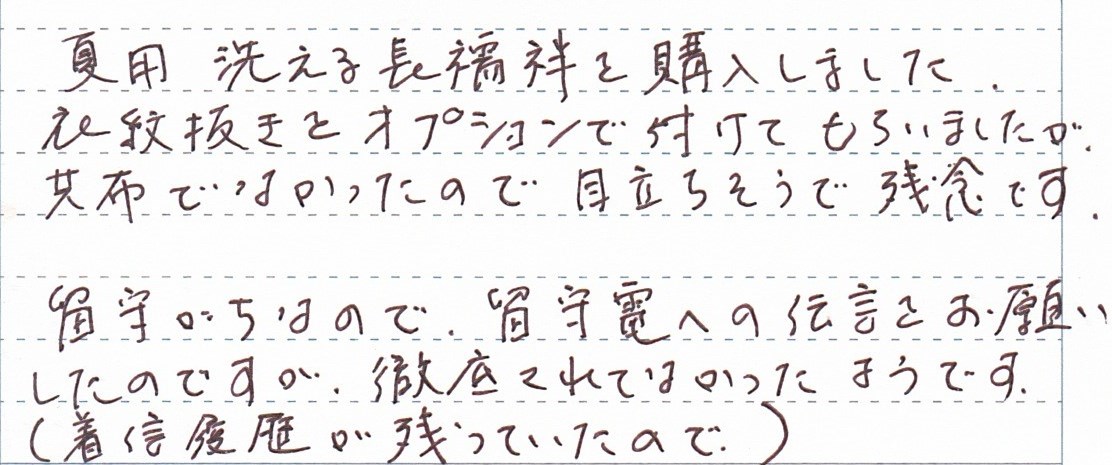 夏用 洗える長襦袢を購入しました.
衣紋抜きをオプションで付けてもらいましたが.
共布でなかったので目立ちそうで残念です.
留守がちなので.留守電への伝言をお願い
したのですが.徹底されてなかったようです.
(着信履歴が残っていたので.)